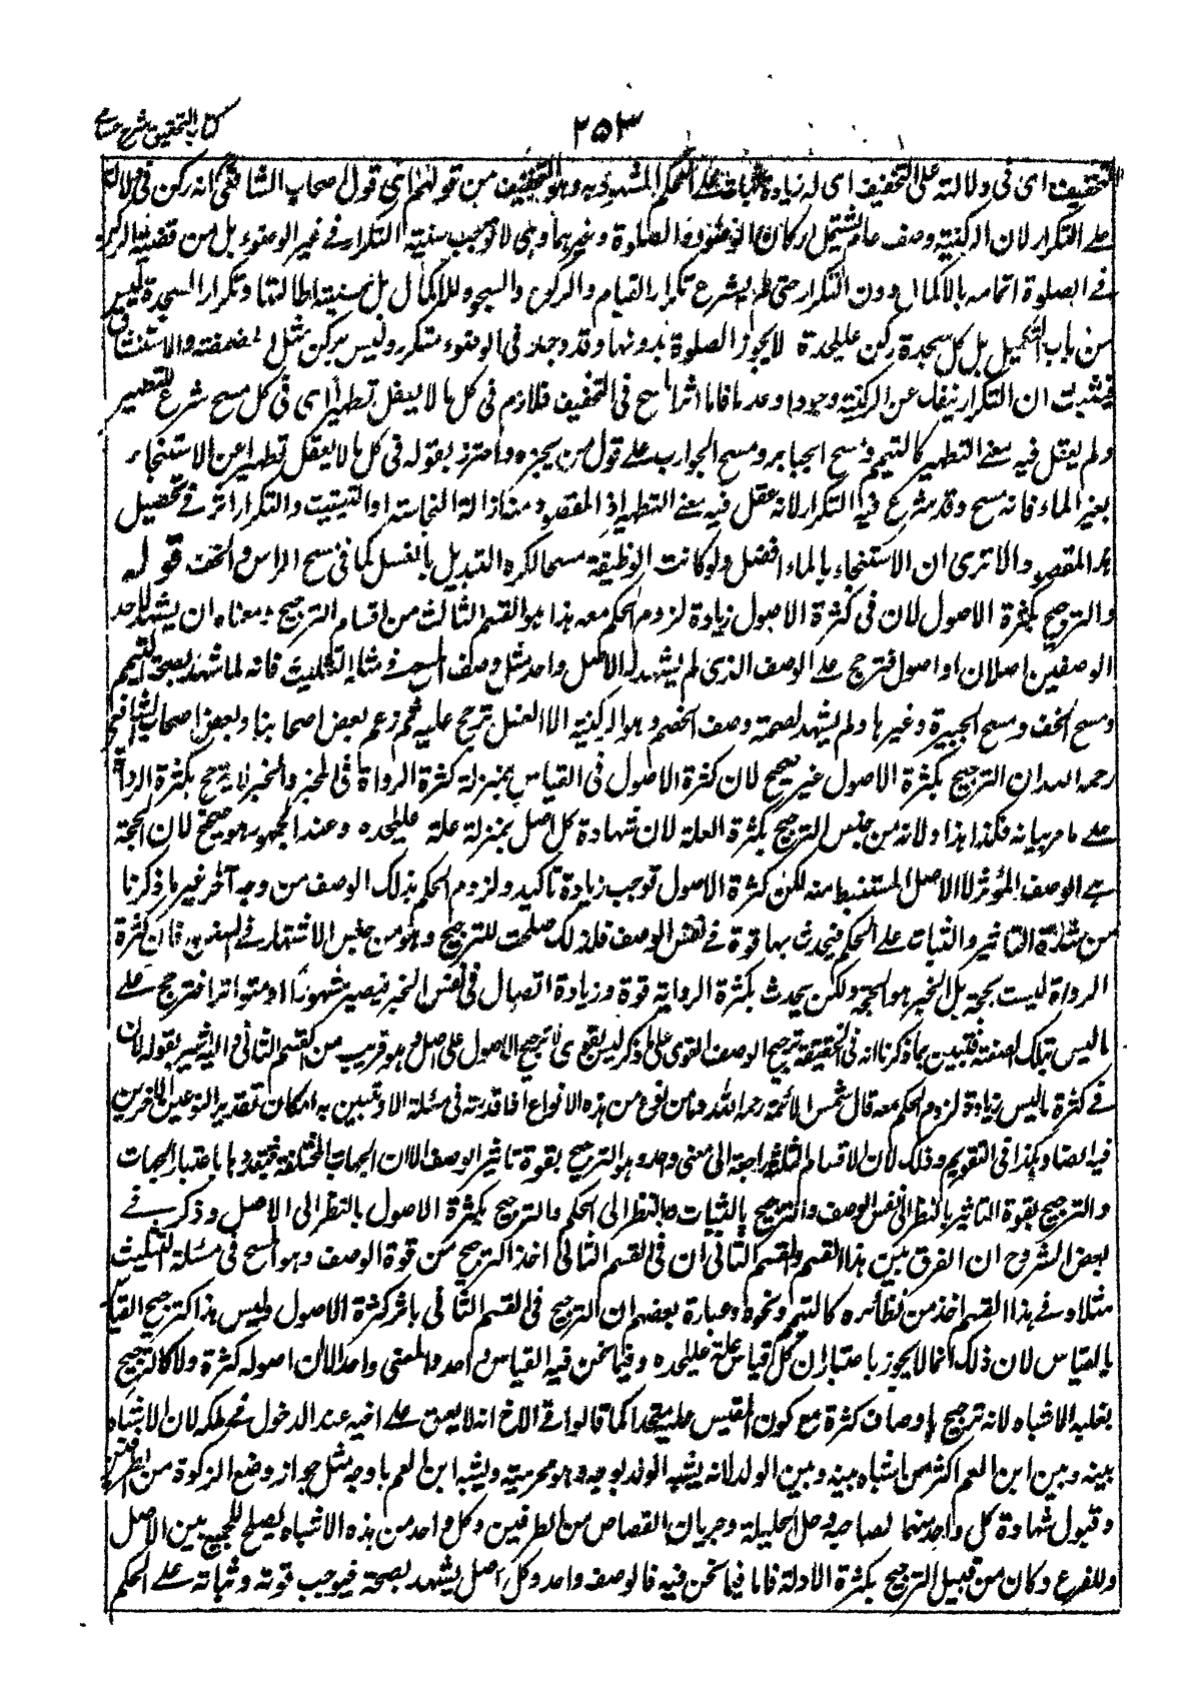 كتاب التحقيق شرح حسامي
٢٥٣
التخفيف اى فى دلالته على التخفيف اى له زيادة ثبات على الحكم المشهود به وهو التخفيف من قولهم اى قول اصحاب الشافعى انه ركن فى دلالته
على التكرار لان الركنية وصف عام يشتمل اركان الوضوء والصلوة وغيرهما وهى لا توجب سنية التكرار فى غير الوضوء بل من قضية الركن
فى الصلوة اتمامه بالاكمال دون التكرار حتى لم يشرع تكرار القيام والركوع والسجود للاكمال بل سنيته اطالتها وتكرار السجدة ليس
من باب التكميل بل كل سجدة ركن عليحدة لا يجوز الصلوة بدونها وقد وجد فى الوضوء متكرر وليس بركن مثل المضمضة والاستنشاق
فيثبت ان التكرار ينفك عن الركنية وجودا وعدما فاما اثر المسح فى التخفيف فلازم فى كل ما لا يعقل تطهيرا اى فى كل مسح شرع للتطهير
ولم يعقل فيه معنى التطهير كالتيمم ومسح الجبائر ومسح الجوارب على قول من يجيزه واحترز بقوله فى كل ما لا يعقل تطهيرا عن الاستنجاء
بغير الماء فانه مسح وقد شرع فيه التكرار لانه عقل فيه معنى التطهير اذ المقصود منه ازالة النجاسة او التنقية والتكرار اثر فى تحصيل
هذا المقصود والا ترى ان الاستنجاء بالماء افضل ولو كانت الوظيفة مسحا لكره التبديل بالغسل كما فى مسح الراس والخف قوله
والترجيح بكثرة الاصول لان فى كثرة الاصول زيادة لزوم الحكم معه هذا هو القسم الثالث من اقسام الترجيح ومعناه ان يشهد لاحد
الوصفين اصلان او اصول فترجح على الوصف الذى لم يشهد له الا اصل واحد مثل وصف المسح فى مسئلة التثليث فانه لما شهد بصحته التيمم
ومسح الخف ومسح الجبيرة وغيرها ولم يشهد لصحة وصف الخصم وهو الركنية الا الغسل ترجح عليه ثم زعم بعض اصحابنا وبعض اصحاب الشافعى
رحمه الله ان الترجيح بكثرة الاصول غير صحيح لان كثرة الاصول فى القياس بمنزلة كثرة الرواة فى الخبر والخبر لا يرجح بكثرة الرواة
على ما مر بيانه فكذا هذا ولانه من جنس الترجيح بكثرة العلة لان شهادة كل اصل بمنزلة علة عليحده وعند الجمهور هو صحيح لان الحجة
هى الوصف المؤثر لا الاصل المستنبط منه لكن كثرة الاصول توجب زيادة تاكيد ولزوم الحكم بذلك الوصف من وجه آخر غير ما ذكرنا
من شدة التاثير والثبات على الحكم فيحدث بها قوة فى نفس الوصف فلذلك صلحت للترجيح وهو من جنس الاشتهار فى السنن فان كثرة
الرواة ليست بحجة بل الخبر هو الحجة ولكن يحدث بكثرة الرواية قوة وزيادة اتصال فى نفس الخبر فيصير مشهورا او متواترا فترجح على
ما ليس بتلك الصفة فتبين بما ذكرنا انه فى الحقيقة ترجيح الوصف القوى على ما ذكر ليس بقوى لا ترجيح الاصول على اصل وهو قريب من القسم الثانى واليه اشير بقوله لان
فى كثرة الاصول زيادة لزوم الحكم معه قال شمس الائمة رحمه الله وما من نوع من هذه الانواع اذا قررته فى مسئلة الا وتبين به امكان تقرير النوعين الآخرين
فيه ايضا وهكذا فى التقويم وذلك لان الاقسام الثلثة راجعة الى معنى واحد وهو الترجيح بقوة تاثير الوصف الا ان الجهات مختلفة فتعددها باعتبار الجهات
والترجيح بقوة التاثير بالنظر الى نفس الوصف والترجيح بالثبات بالنظر الى الحكم والترجيح بكثرة الاصول بالنظر الى الاصل وذكر فى
بعض الشروح ان الفرق بين هذا القسم والقسم الثانى ان فى القسم الثانى اخذ الترجيح من قوة الوصف وهو المسح فى مسئلة التثليث
مثلا وفى هذا القسم اخذ من نظائره كالتيمم ونحوه وعبارة بعضهم ان الترجيح فى القسم الثانى باثر كثرة الاصول وليس هذا كترجيح القياس
بالقياس لان ذلك انما لا يجوز باعتبار ان كل قياس علة عليحده وفيما نحن فيه القياس واحد والمعنى واحد الا ان اصوله كثرة ولا كالترجيح
بغلبة الاشباه لانه ترجيح باوصاف كثرة مع كون المقيس عليه متحدا كما قالوا فى الاخ انه لا يعتق على اخيه عند الدخول فى ملكه لان الاشباه
بينه وبين ابن العم اكثر من اشباه بينه وبين الولد لانه يشبه الولد بوجه وهو محرمية ويشبه ابن العم باوجه مثل جواز وضع الزكوة من الطرفين
وقبول شهادة كل واحد منهما لصاحبه وحل الحليلة وجريان القصاص من الطرفين وكل واحد من هذه الاشباه يصلح للجمع بين الاصل
وللفرع وكان من قبيل الترجيح بكثرة الادلة فاما فيما نحن فيه فالوصف واحد وكل اصل يشهد بصحته فيوجب قوته وثباته على الحكم